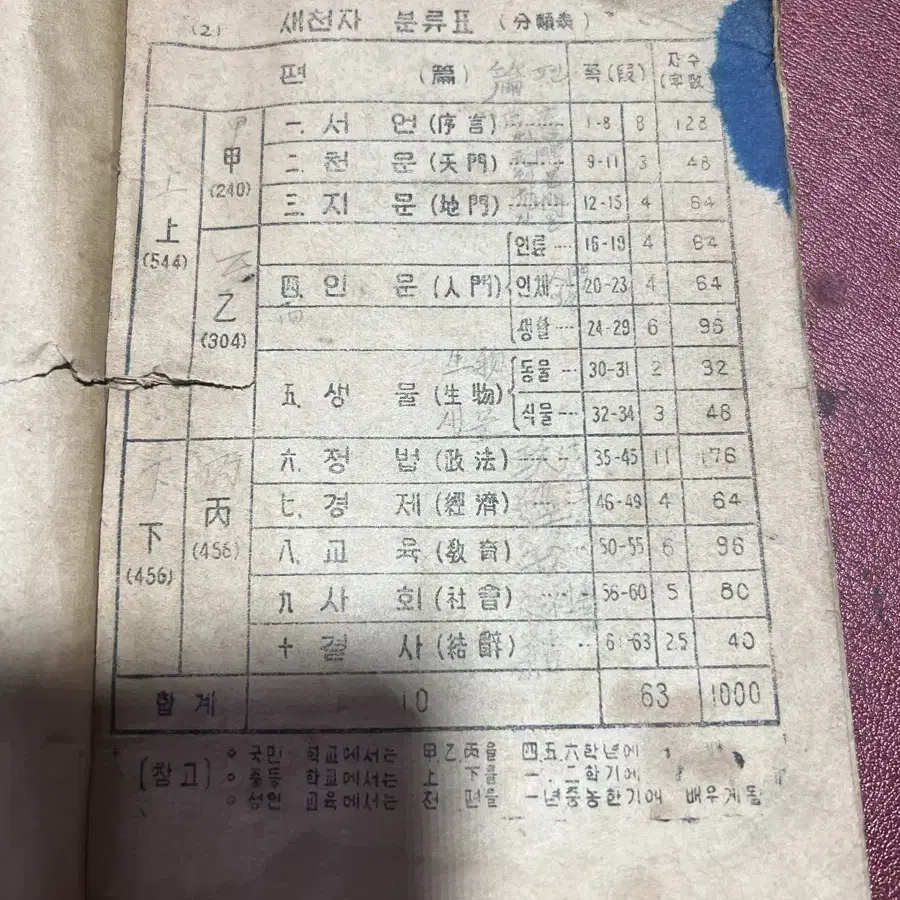 (2) 새천자 분류표 (分類表)
편 (篇) 쪽(段) 자수(字數)
上 (544)
甲 (240)
一. 서 언 (序言) 1-8 8 128
二. 천 문 (天門) 9-11 3 48
三. 지 문 (地門) 12-15 4 64
乙 (304)
四. 인 문 (人門)
인륜 16-19 4 64
인체 20-23 4 64
생활 24-29 6 96
五. 생 물 (生物)
동물 30-31 2 32
식물 32-34 3 48
下 (456)
丙 (456)
六. 정 법 (政法) 35-45 11 176
七. 경 제 (經濟) 46-49 4 64
八. 교 육 (敎育) 50-55 6 96
九. 사 회 (社會) 56-60 5 80
十. 결 사 (結辭) 61-63 2.5 40
합계 10 63 1000
[참고] ○ 국민 학교에서는 甲.乙.丙을 四.五.六학년에
○ 중등 학교에서는 上 下를 一.二학기에
○ 성인 교육에서는 전 편을 一년중농한기에 배우게됨